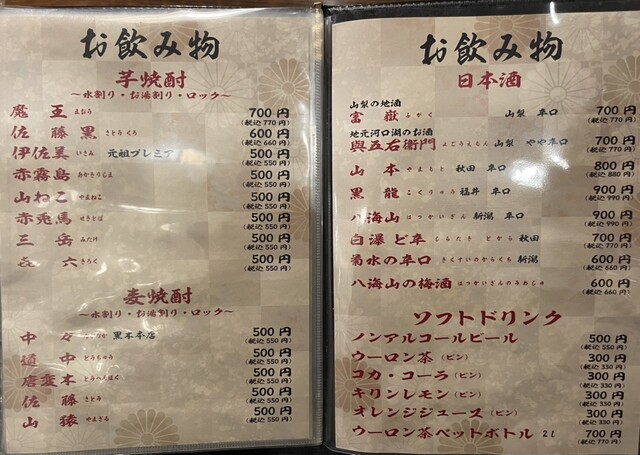 お飲み物
芋焼酎
～水割り・お湯割り・ロック～
魔王 まおう 700円
(税込 770円)
佐藤黒 さとうくろ 600円
(税込 660円)
伊佐美 いさみ 元祖プレミア 500円
(税込 550円)
赤霧島 あかきりしま 500円
(税込 550円)
山ねこ やまねこ 500円
(税込 550円)
赤兎馬 せきとば 500円
(税込 550円)
三岳 みたけ 500円
(税込 550円)
㐂六 きろく 500円
(税込 550円)
麦焼酎
～水割り・お湯割り・ロック～
中々 黒木本店 500円
(税込 550円)
道中 どうちゅう 500円
(税込 550円)
唐変木 とうへんぼく 500円
(税込 550円)
佐藤 さとう 500円
(税込 550円)
山猿 やまざる 500円
(税込 550円)
お飲み物
日本酒
山梨の地酒
富嶽 ふがく 山梨 辛口 700円
(税込 770円)
地元河口湖のお酒
與五右衛門 よごうえもん 山梨 やや辛口 700円
(税込 770円)
山本 やまもと 秋田 辛口 800円
(税込 880円)
黒龍 こくりゅう 福井 辛口 900円
(税込 990円)
八海山 はっかいさん 新潟 辛口 900円
(税込 990円)
白瀑ど辛 しらたき どから 秋田 700円
(税込 770円)
菊水の辛口 きくすいのからくち 新潟 600円
(税込 660円)
八海山の梅酒 はっかいざんのうめしゅ 600円
(税込 660円)
ソフトドリンク
ノンアルコールビール 500円
(税込 550円)
ウーロン茶 (ビン) 300円
(税込 330円)
コカ・コーラ (ビン) 300円
(税込 330円)
キリンレモン (ビン) 300円
(税込 330円)
オレンジジュース (ビン) 300円
(税込 330円)
ウーロン茶ペットボトル 2l 700円
(税込 770円)